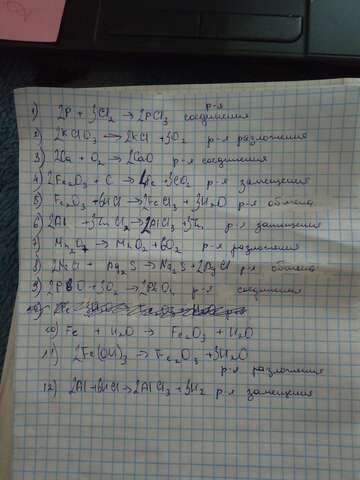 р-я
1) 2P + 3Cl₂ → 2PCl₃ соединения
2) 2KClO₃ → 2KCl + 3O₂ р-я разложения
3) 2Ca + O₂ → 2CaO р-я соединения
4) 2Fe₂O₃ + C → 4Fe + 3CO₂ р-я замещения
5) Fe₂O₃ + 6HCl → 2FeCl₃ + 3H₂O р-я обмена
6) 2Al + 3ZnCl₂ → 2AlCl₃ + 3Zn р-я замещения
7) Mn₂O₇ → MnO₂ + O₂ р-я разложения
8) 2NaCl + Ag₂S → Na₂S + 2AgCl р-я обмена
9) 2PbO + O₂ → 2PbO₂ соединения
10) Fe + H₂O → Fe₂O₃ + H₂O
11) 2Fe(OH)₃ → Fe₂O₃ + 3H₂O
р-я разложения
12) 2Al + 6HCl → 2AlCl₃ + 3H₂ р-я замещения